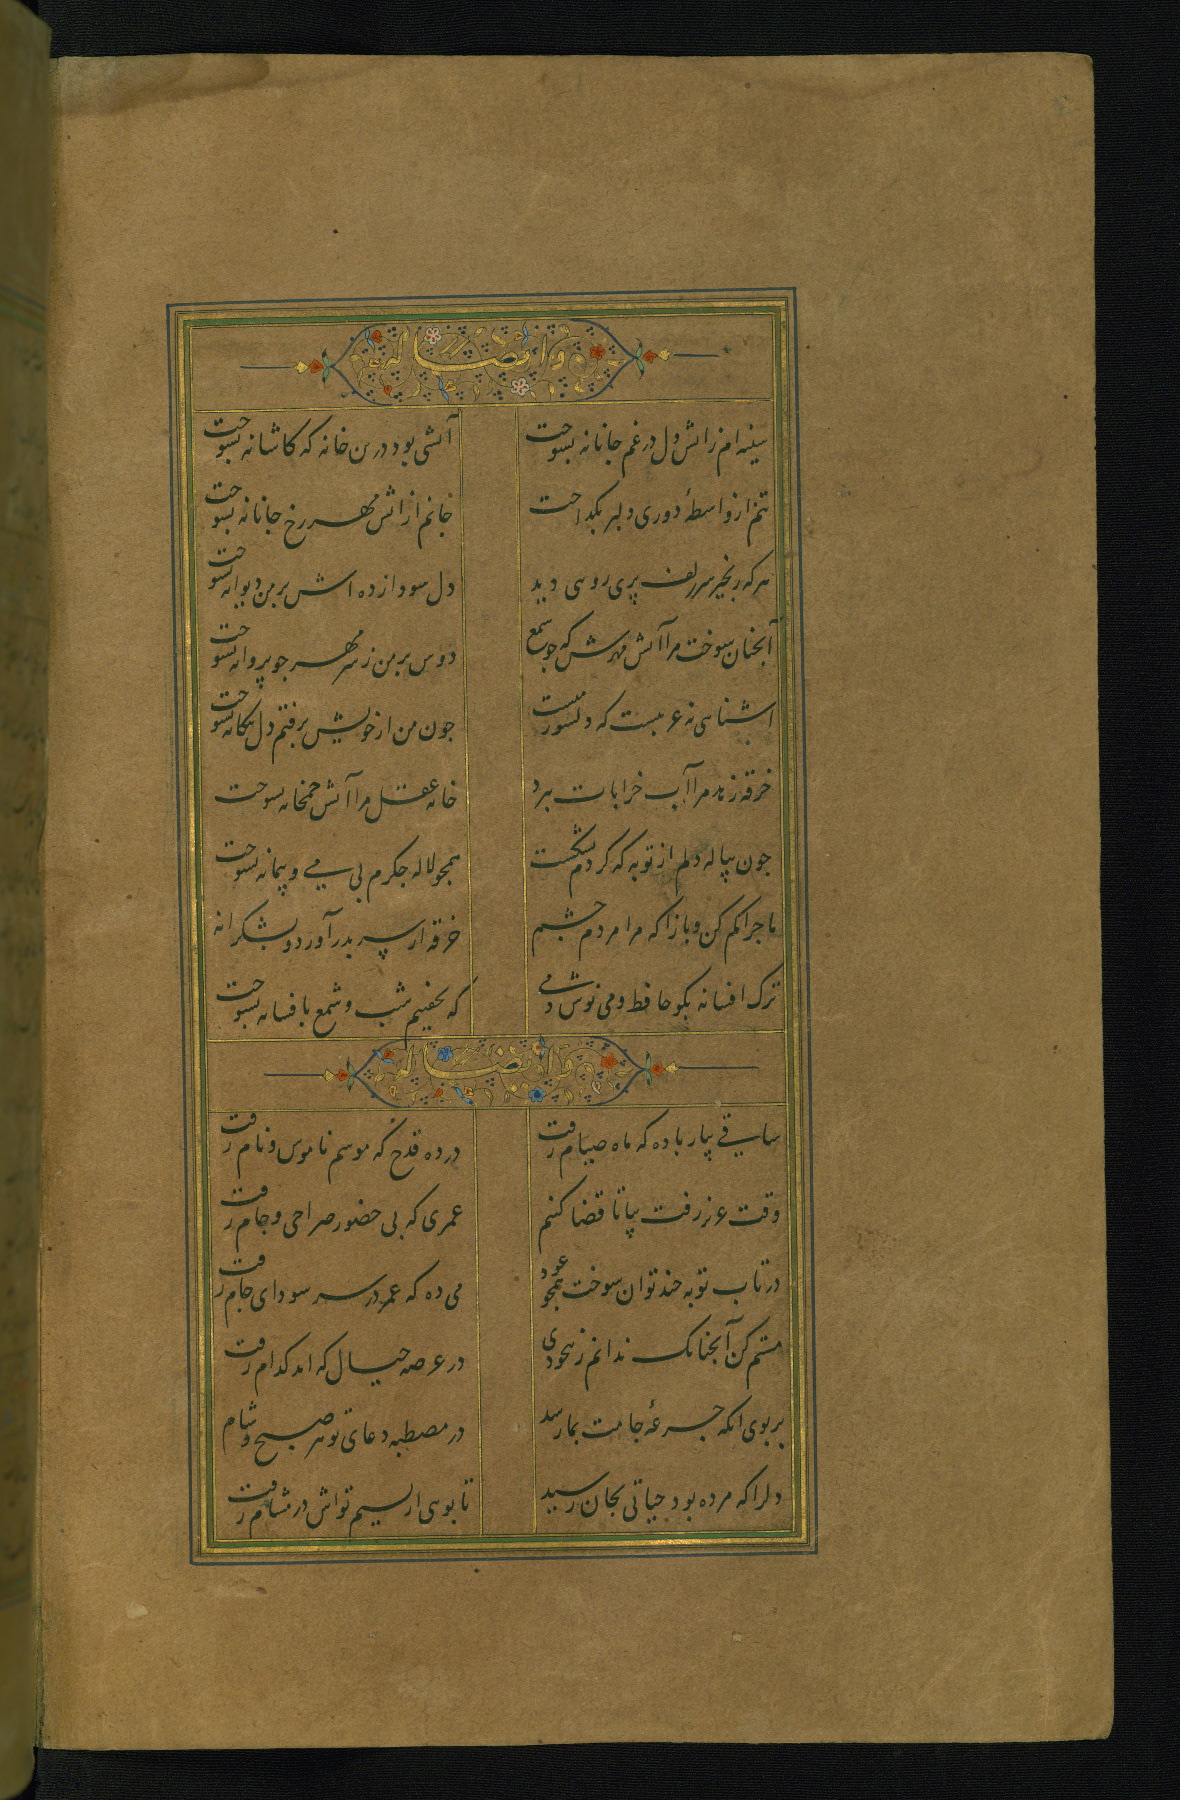 وایضا له
سینه ام ز اتش دل در غم جانانه بسوخت
آتشی بود درین خانه که کاشانه بسوخت
تنم از واسطهٔ دوری دلبر بکداخت
جانم از اتش مهر رخ جانانه بسوخت
هر که زنجیر سر زلف پری رویی دید
دل سودا زده اش بر من دیوانه بسوخت
آنجنان سوخت مرا آتش مهرش که جو شمع
دوس بر من ز سر مهر جو پروانه بسوخت
اشنایی نه غریبست که دلسوز منست
جون من از خویش برفتم دل بیکانه بسوخت
خرقه زهد مرا آب خرابات ببرد
خانه عقل مرا آتش خمخانه بسوخت
جون پیاله دلم از توبه که کردم بشکست
همجو لاله جکرم بی می و پیمانه بسوخت
ماجرا کم کن و باز ا که مرا مردم چشم
خرقه از سر بدر آورد و بشکرانه
ترک افسانه بکو حافظ و می نوش دمی
که نخفتیم شب و شمع بافسانه بسوخت
وایضا له
ساقی بیار باده که ماه صیام رفت
در ده قدح که موسم ناموس و نام رفت
وقت عزیز رفت بیا تا قضا کنیم
عمری که بی حضور صراحی و جام رفت
در تاب توبه جند توان سوخت همجو عود
می ده که عمر در سر سودای خام رفت
مستم کن آنجنانک ندانم ز بیخودی
در عرصه خیال که امد کدام رفت
بر بوی انکه جرعهٔ جامت بما رسد
در مصطبه دعای تو هر صبح و شام
دلرا که مرده بود حیاتی بجان رسید
تا بویی از نسیم تواش در مشام رفت